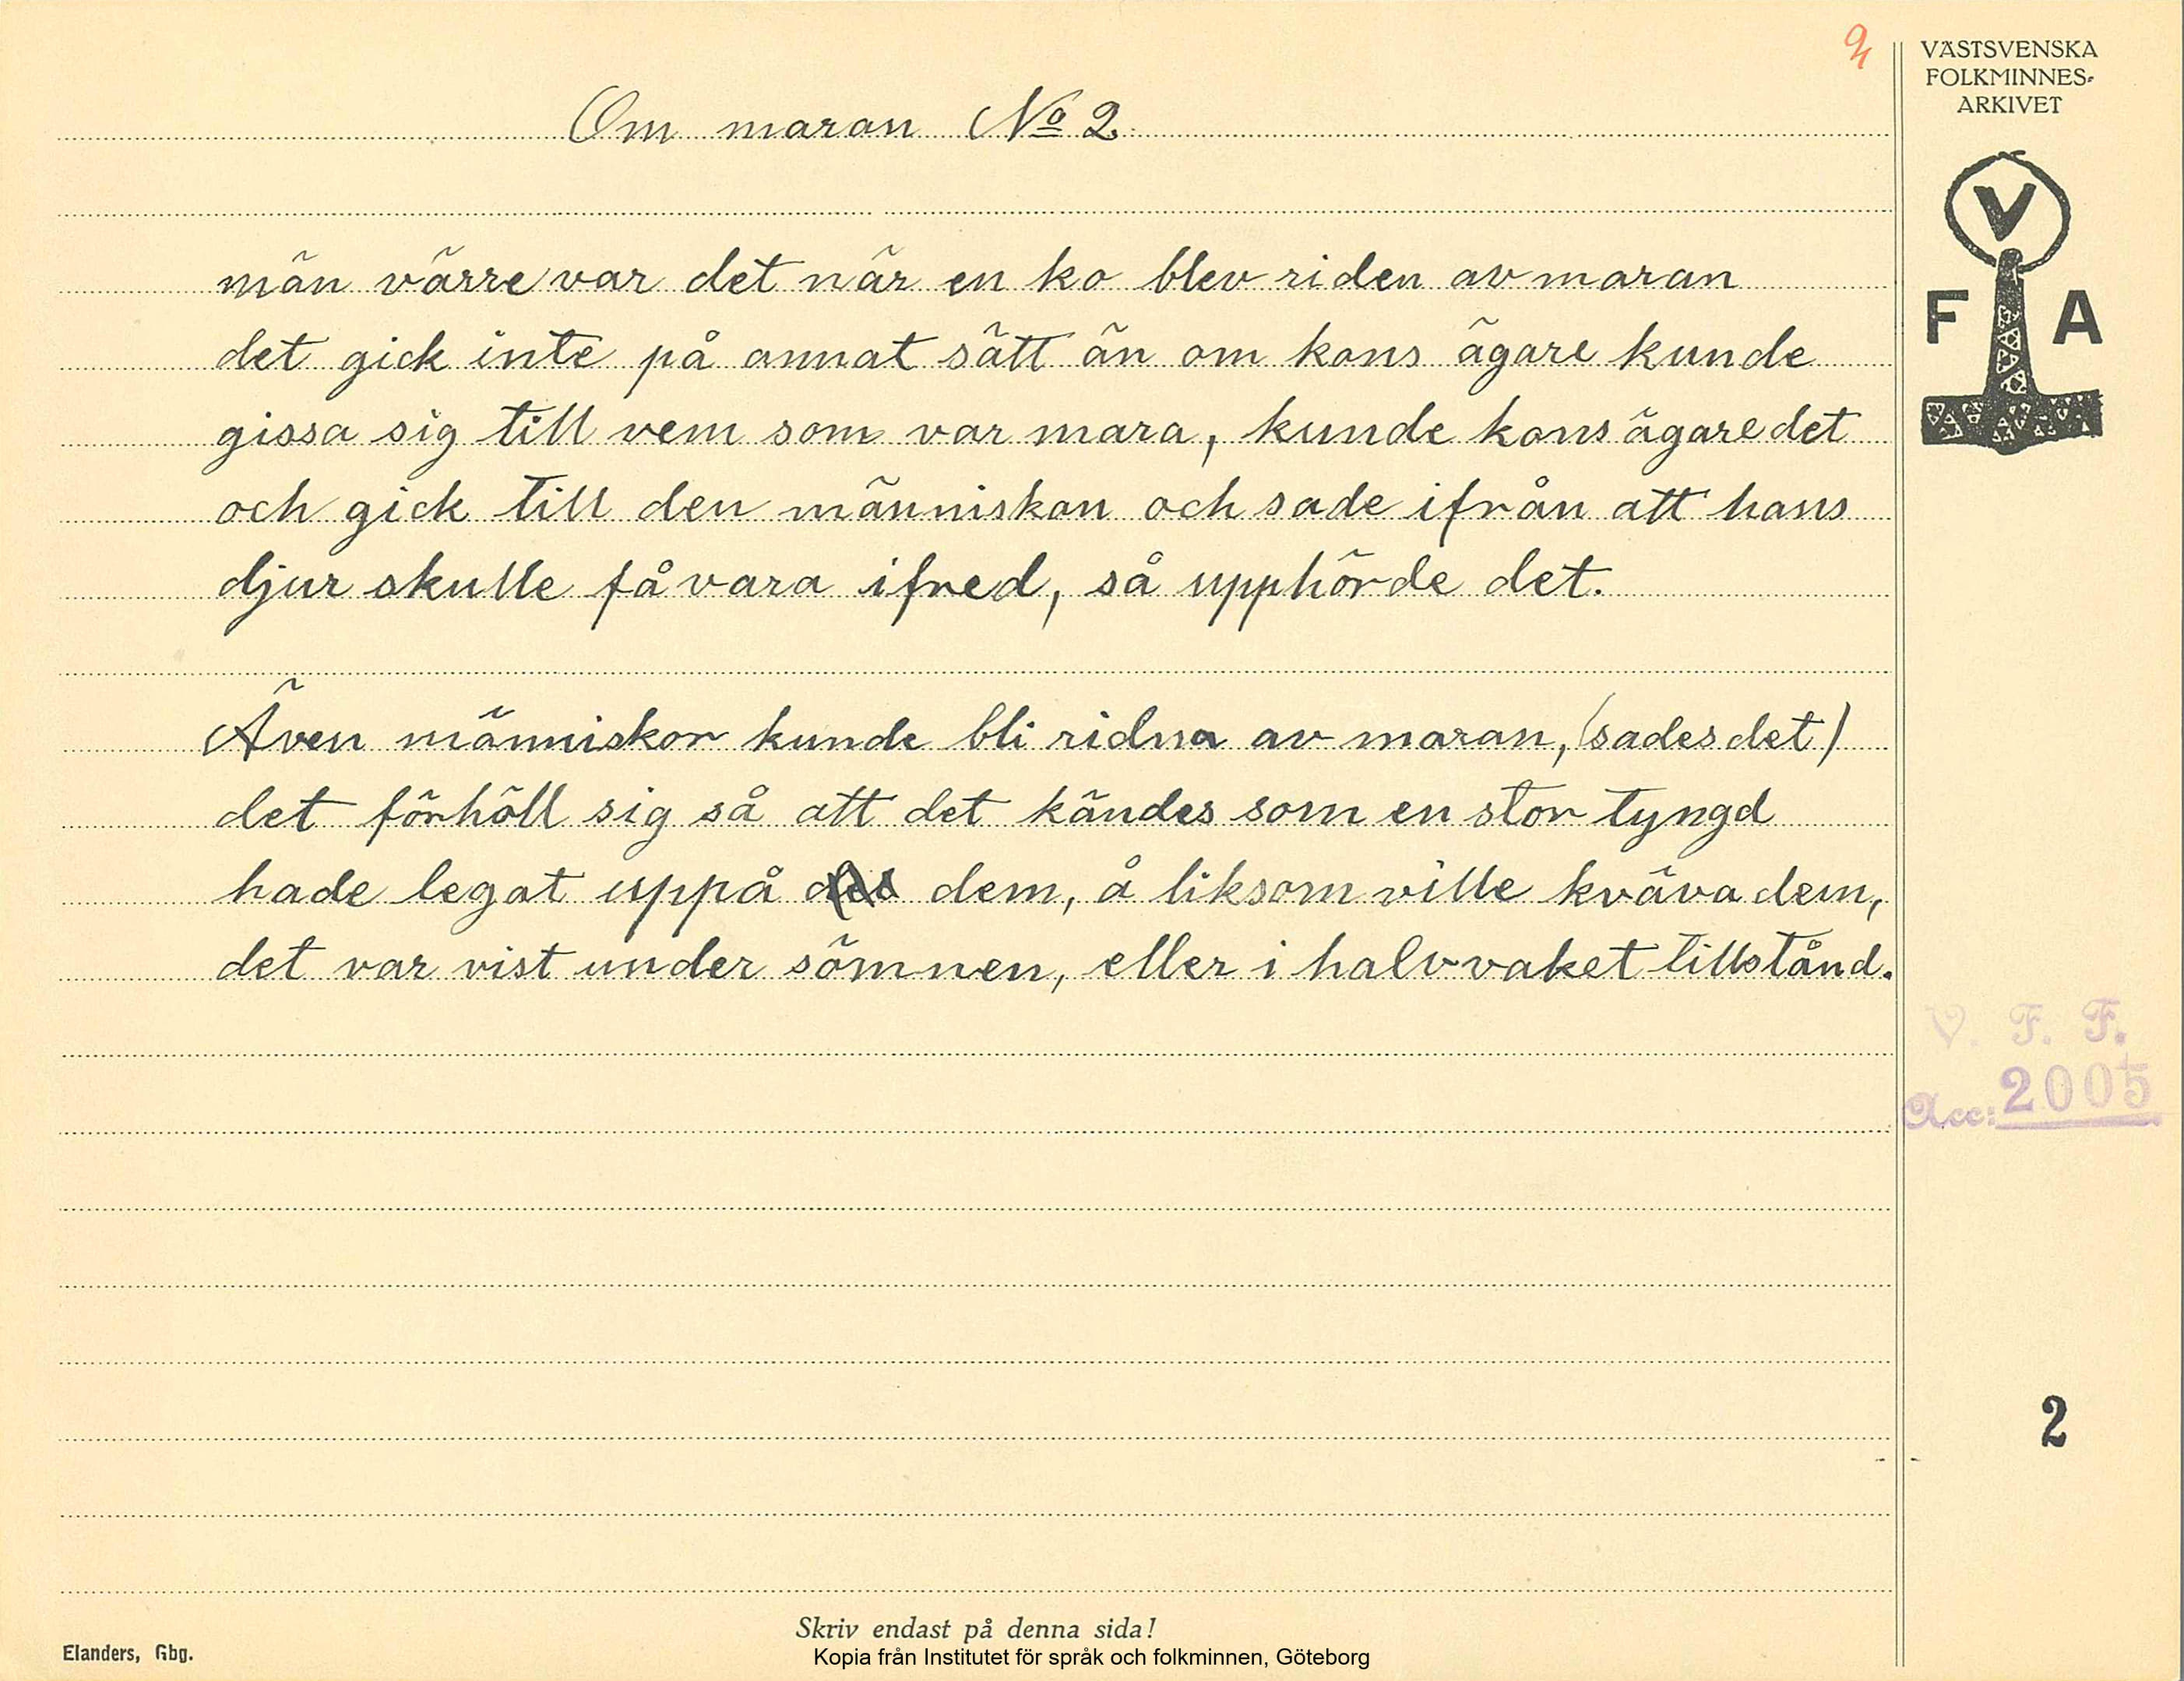 Om maran No 2.
män värre var det när en ko blev riden av maran
det gick inte på annat sätt än om kons ägare kunde
gissa sig till vem som var mara, kunde kons ägare det
och gick till den människan och sade ifrån att hans
djur skulle få vara ifred, så upphörde det.
Även människor kunde bli ridna av maran, (sades det)
det förhöll sig så att det kändes som en stor tyngd
hade legat uppå dem, å liksom ville kväva dem,
det var vist under sömnen, eller i halvvaket tillstånd.
VÄSTSVENSKA
FOLKMINNES-
ARKIVET
V
F A
V. F. F.
Acc: 2005
2
Skriv endast på denna sida!
Elanders, Gbg.
Kopia från Institutet för språk och folkminnen, Göteborg